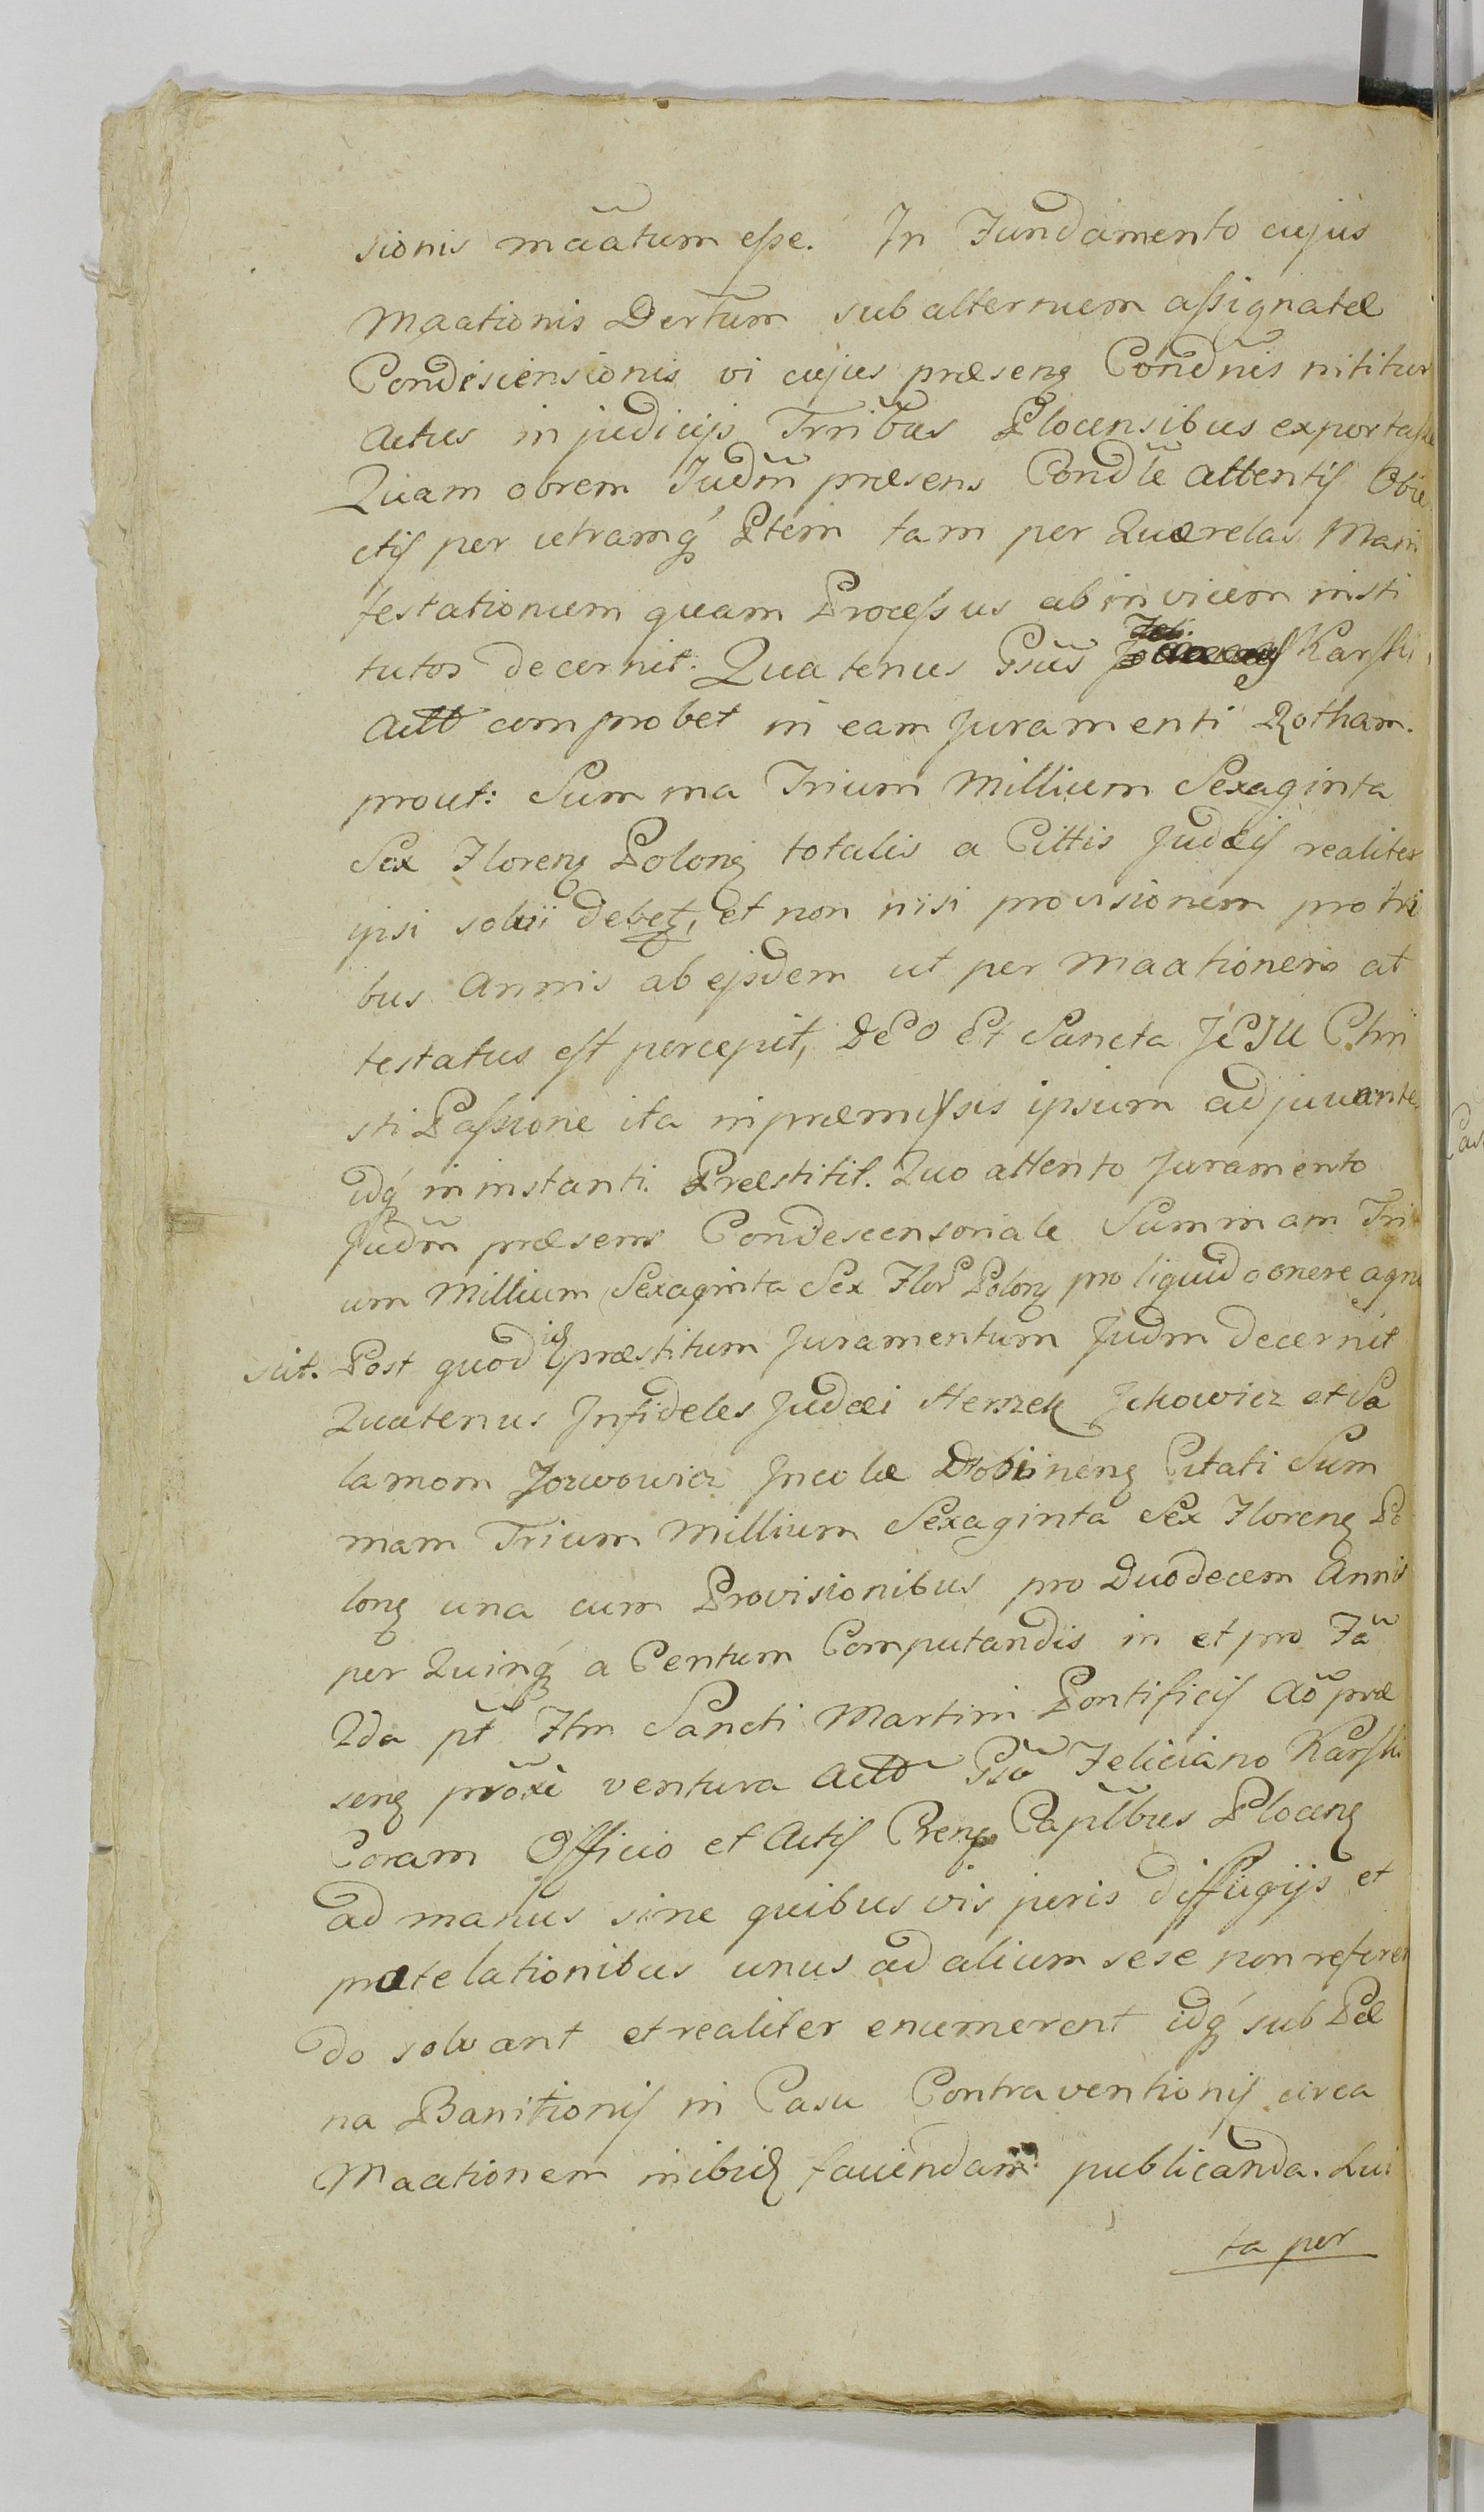 sionis maãtum esse. In Fundamento cujus
Maationis Dertum subalternum assignatæ
Condesiensionis vi cujus præsenς Condnis nititur
Actus in judicijs Trribus Plocensibus exportasse
Quam obrem Judm̃ præsens Condle attentis Obie
ctis per utramq́ Ptem tam per Quærelas Mani
festationum quam Processus ab invicem insti
tutos decernit. Quatenus Gsus Feli: Karski
Actt comprobet in eam Juramenti Rotham.
prout: Summa Trium Millium Sexaginta
Sex Florenς Polonς totalis a Cittis Judæis realiter
ipsi solui debet, et non nisi provisionem pro tri
bus Annis ab ejsdem ut per Maationem at
testatus est percepit, DeO Et Sancta JESU Chri
sti Passione ita in præmissis ipsum adjuvante
idq́ in instanti. Præstitit. Quo attento Juramento
Judm̃ præsens Condescensoriale Summam Tri
um Millium Sexaginta Sex Flor Polonς pro liquido onere agno
scit. Post quod præstitum Juramentum Judm decernit
Quatenus Infideles Judæi Herszek Jckowicz et Sa
lamon Jozwowicz Incolæ Dobiinenς Citati Sum
mam Trium Millium Sexaginta Sex Florenς Po
lonς una cum Provisionibus pro Duodecem Annis
per Quinq́ a Centum Computandis in et pro Fã
2da pt̃ Ftm Sancti Martini Pontificis Aõ præ
senς prõxe ventura Actt Gso Feliciano Karski
Coram Officio et Actis Crenς Captlbus Plocenς
ad manus sine quibus vis juris diffugijs et
protelationibus unus ad alium sese non referen
do solvant et realiter enumerent idq́ sub Pæ
na Banitionis in Casu Contraventionis circa
Maationem inibiς faciendam publicanda. Lui
ta per